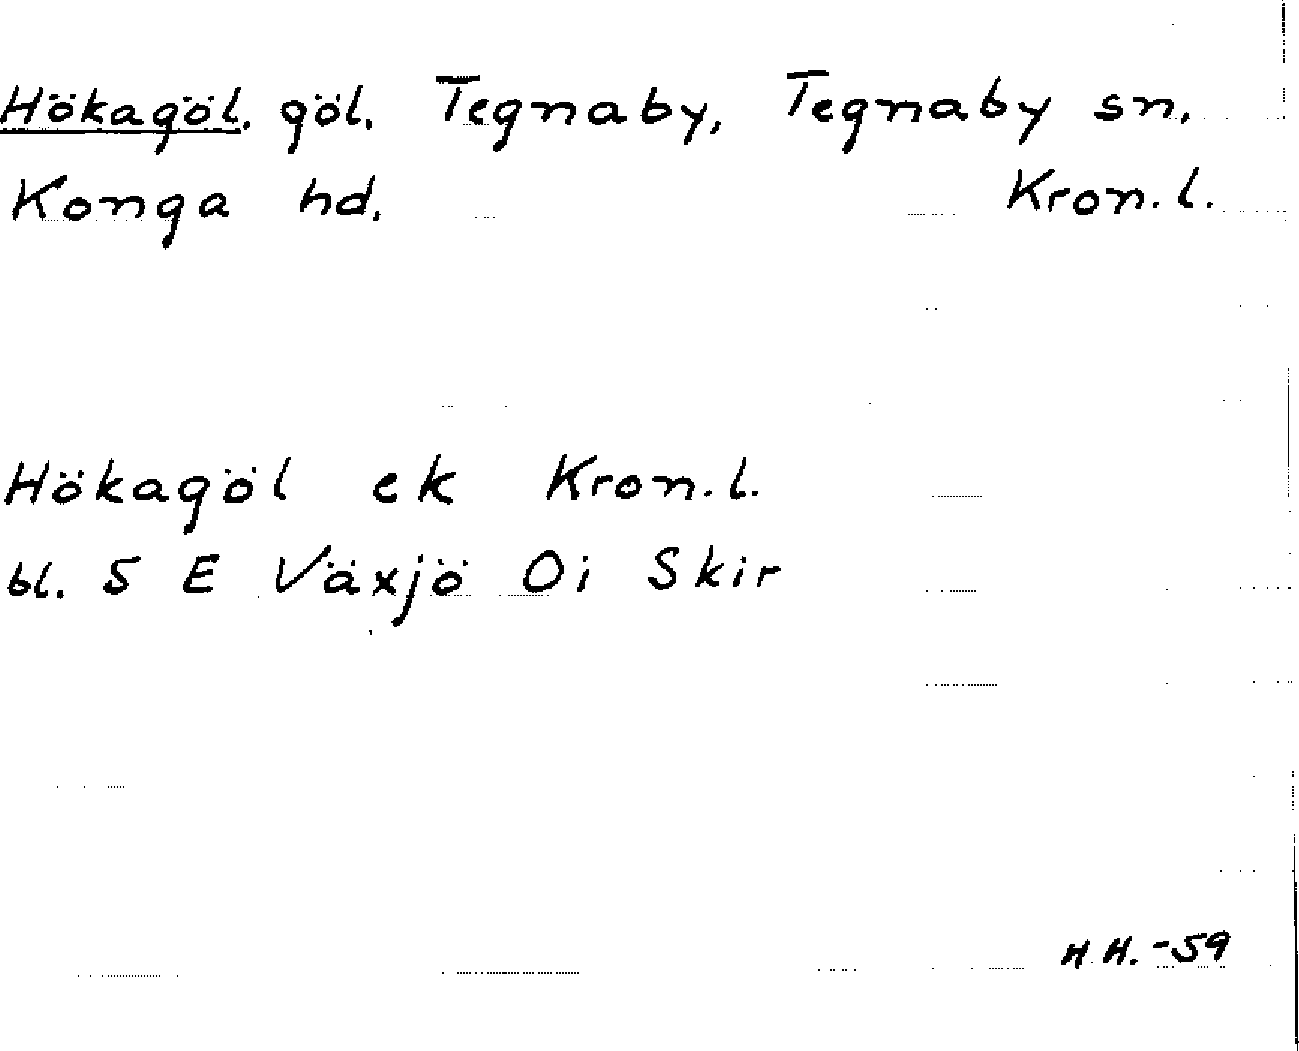 Hökagöl. göl. Tegnaby, Tegnaby sn.
Konga hd. Kron.l.
Hökagöl ek Kron.l.
bl. 5 E Växjö Oi Skir
H H. -59